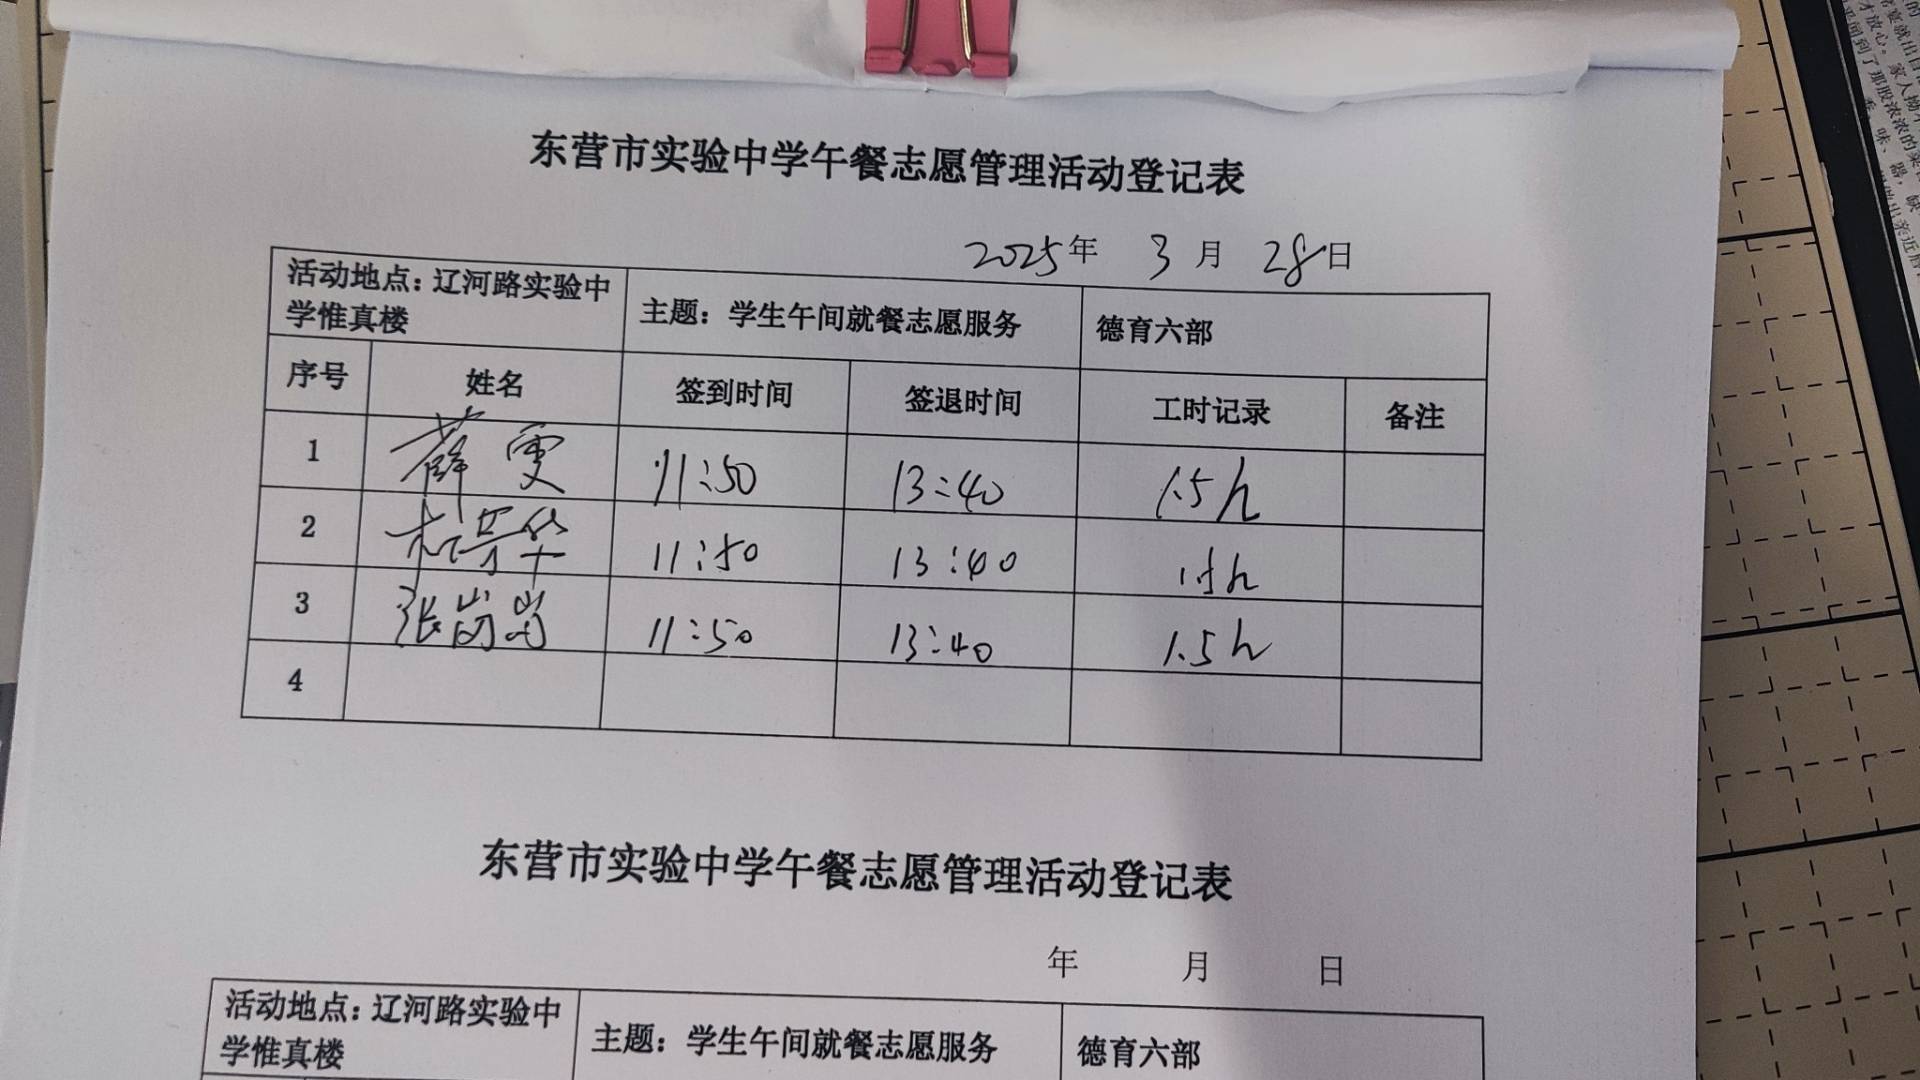 东营市实验中学午餐志愿管理活动登记表
2025年 3月 28日
活动地点：辽河路实验中学惟真楼 主题：学生午间就餐志愿服务 德育六部
序号 姓名 签到时间 签退时间 工时记录 备注
1 薛雯 11:50 13:40 1.5h
2 11:50 13:40 1.5h
3 张 11:50 13:40 1.5h
4
东营市实验中学午餐志愿管理活动登记表
年 月 日
活动地点：辽河路实验中学惟真楼 主题：学生午间就餐志愿服务 德育六部